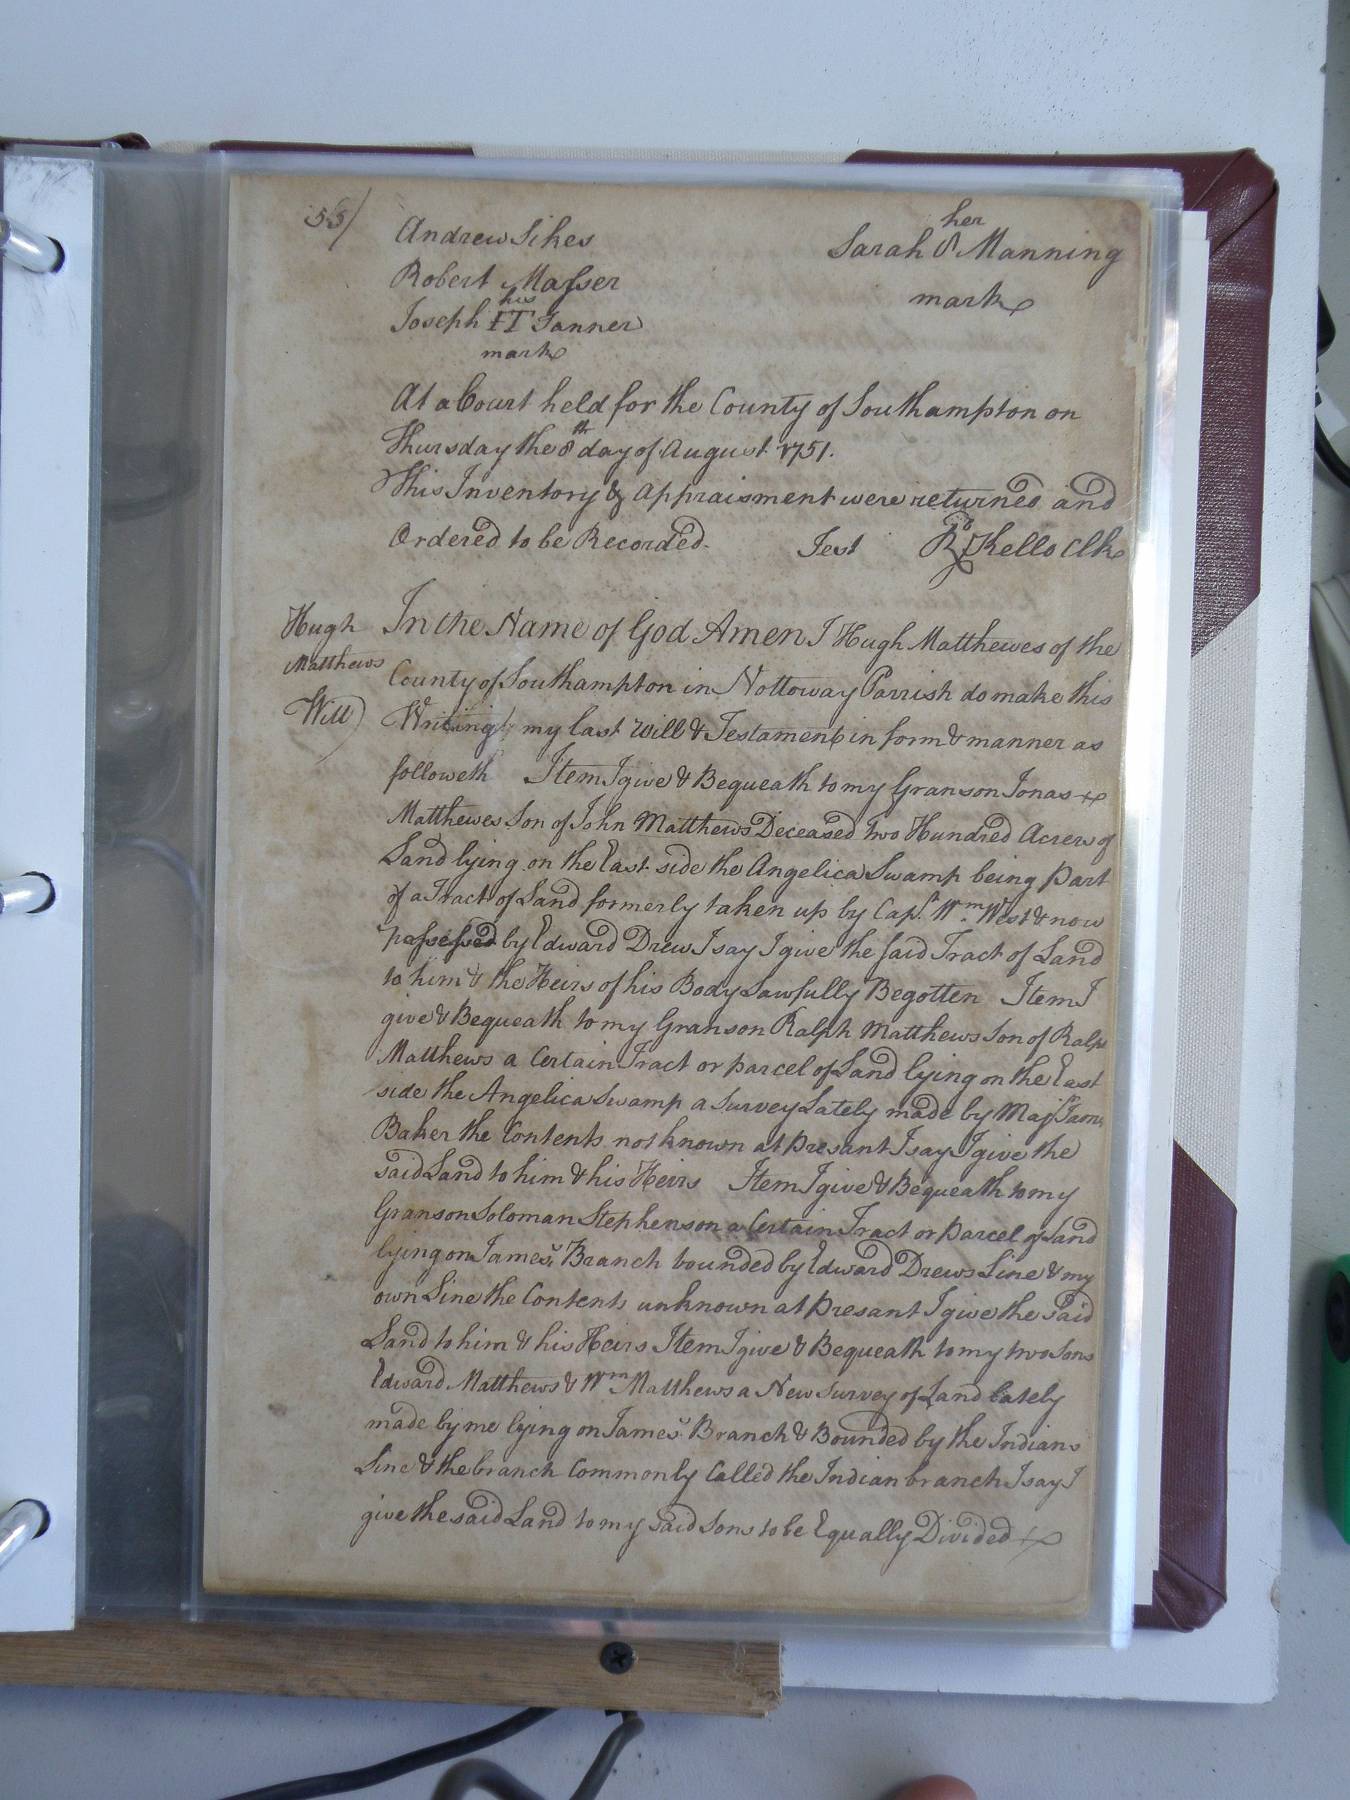 55/
Andrew Sikes
her
Sarah S Manning
mark
Robert Masser
his
Joseph IT Tanner
mark
At a Court held for the County of Southampton on
Thursday the 8th day of August 1751.
This Inventory & Appraisment were returned and
Ordered to be Recorded. Test Rd Kello Clk
Hugh
Matthews
Will)
In the Name of God Amen I Hugh Matthewes of the
County of Southampton in Nottoway Parrish do make this
Writing my last Will & Testament in form & manner as
followeth Item I give & Bequeath to my Granson Jonas
Matthewes Son of John Matthews Deceased two Hundred Acres of
Land lying on the East side the Angelica Swamp being part
of a Tract of Land formerly taken up by Capt. Wm. West & now
possessed by Edward Drew I say I give the said Tract of Land
to him & the Heirs of his Body Lawfully Begotten Item I
give & Bequeath to my Granson Ralph Matthews Son of Ralph
Matthews a Certain Tract or parcel of Land lying on the East
side the Angelica Swamp a Survey Lately made by Majr
Baker the Contents not known at Presant I say I give the
said Land to him & his Heirs Item I give & Bequeath to my
Granson Soloman Stephenson a Certain Tract or Parcel of Land
lying on James's Branch bounded by Edward Drews Line & my
own Line the Contents unknown at Presant I give the said
Land to him & his Heirs Item I give & Bequeath to my two Sons
Edward Matthews & Wm Matthews a New Survey of Land Lately
made by me lying on James's Branch & Bounded by the Indians
Line & the branch Commonly Called the Indian branch I say I
give the said Land to my said Sons to be Equally Divided